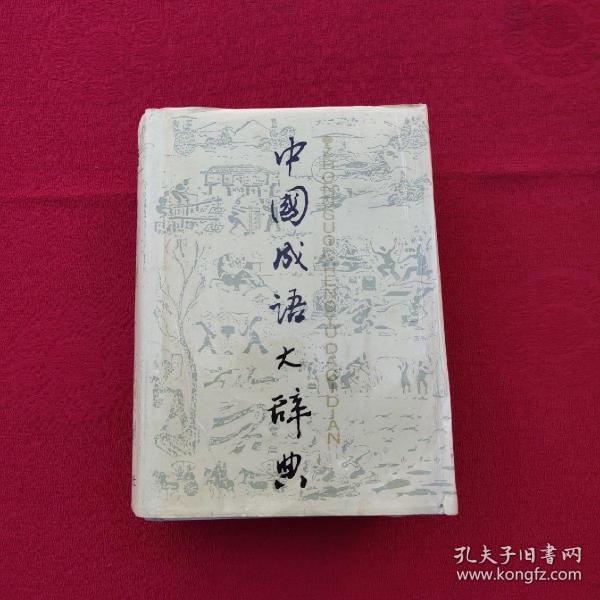 中國成语大辞典
ZHONGGUOCHENGYUDACIDIAN
孔夫子旧書网
www.kongfz.com